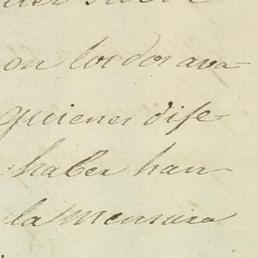 on los dos ava-
quienes dise
haber han
la mensura